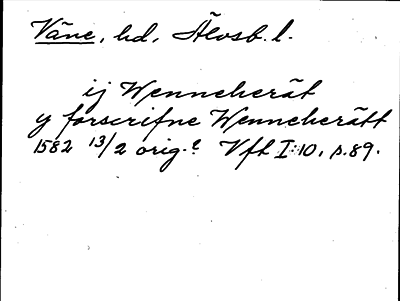 Väne, hd, Älvsb. l.
ij Wenneherät
y forscrifne Wenneherätt
1582 13/2 orig.? Vft I:10, s.89.